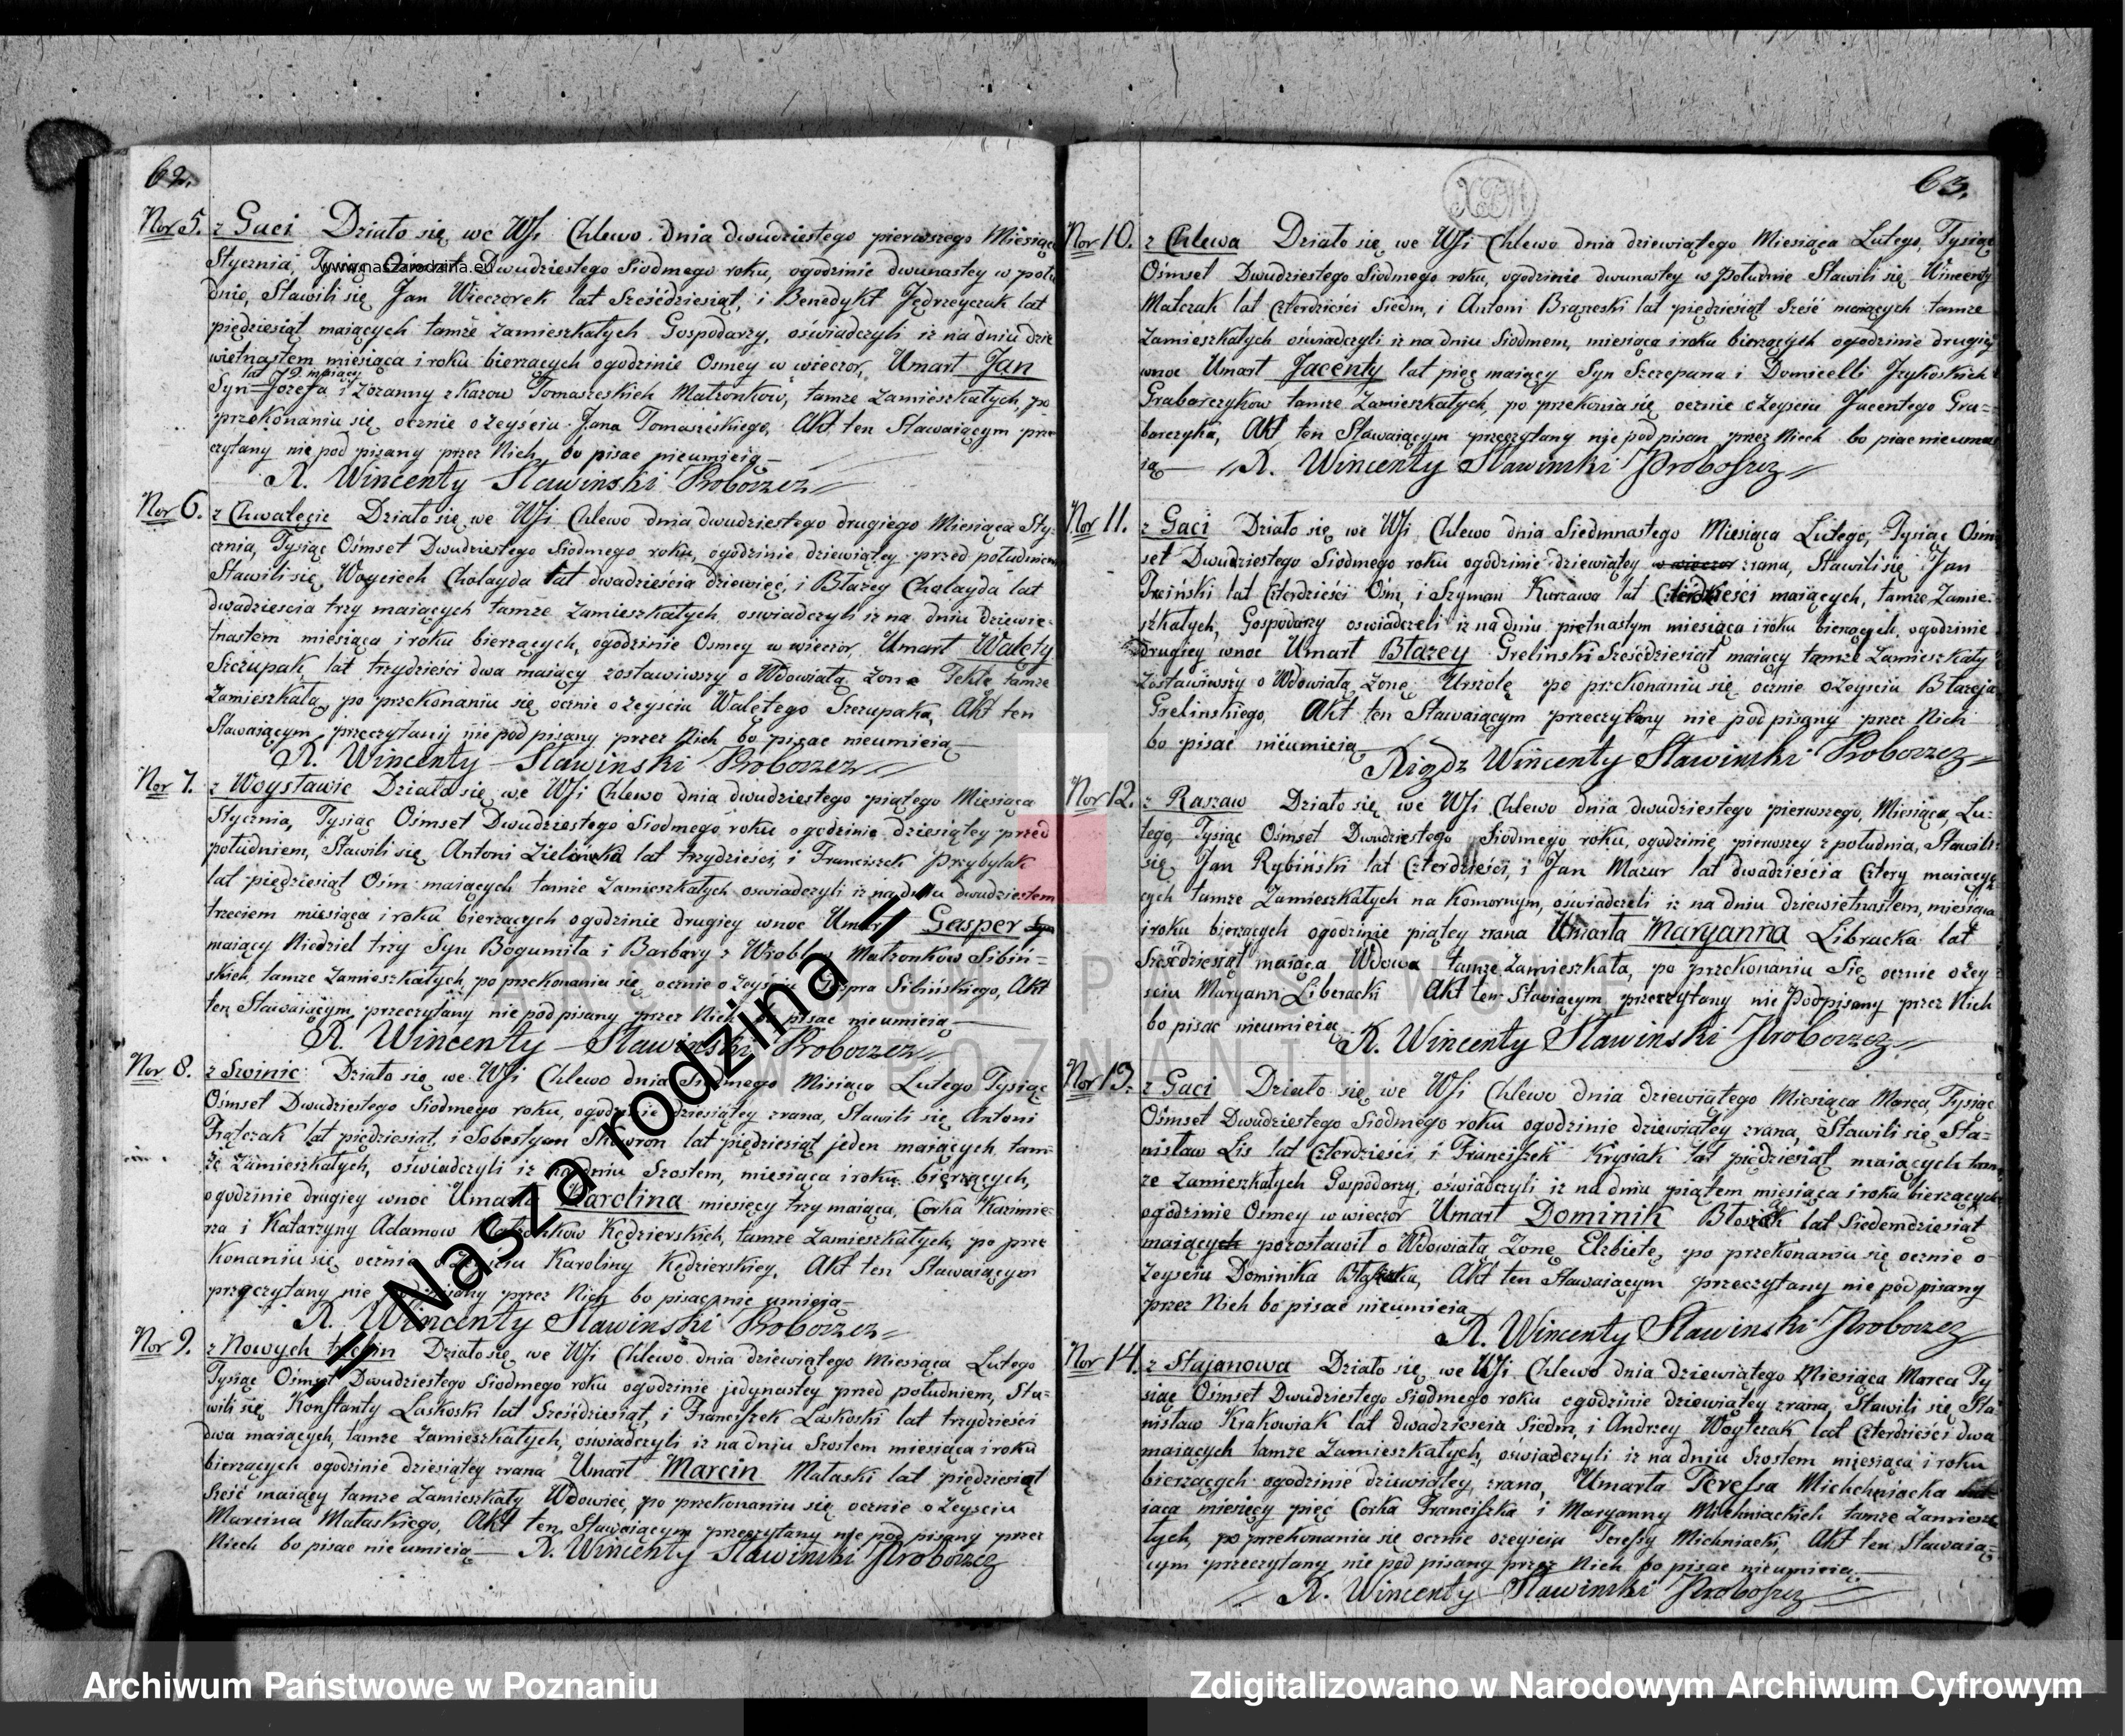 62.
Nor 5. z Gaci Działo się we Wsi Chlewo dnia dwudziestego pierwszego Miesiąca
Stycznia, Tysiąc Ośmset Dwudziestego Siodmego roku, ogodzinie dwunastey w połu
www.naszarodzina.eu
dnie, Stawili się Jan Wieczorek lat Sześćdziesiąt, i Benedykt Jędrzeyczak lat
pięćdziesiąt maiących tamże zamieszkałych Gospodarzy, oświadczyli iż na dniu dzie
więtnastem miesiąca i roku bierzących ogodzinie Osmey w wieczor, Umarł Jan
lat 19 maiący
Syn Jozefa i Zozanny z Kazow Tomaszeskich Małżonkow, tamże zamieszkałych, po
przekonaniu się ocznie o zeyściu Jana Tomaszeskiego, Akt ten Stawaiącym prze
czytany nie pod pisany przez Nich, bo pisac nieumieią
X. Wincenty Sławinski Proboszcz
Nor 6. z Chwalęcic Działo się we Wsi Chlewo dnia dwudziestego drugiego Miesiąca Sty-
cznia, Tysiąc Ośmset Dwudziestego Siodmego roku, ogodzinie dziewiątey przed południem
Stawili się, Woyciech Cholayda lat dwadzieścia dziewięć, i Błażey Cholayda lat
dwadziescia trzy maiących tamże zamieszkałych, oswiadczyli iż na dniu dziewię-
tnastem miesiąca i roku bierzących, ogodzinie Osmey w wieczor, Umarł Walęty
Szczupak, lat trzydzieści dwa maiący zostawiwszy o Wdowiałą Zone Teklę tamże
Zamieszkałą, po przekonaniu się ocznie o zeysciu Walętego Szczupaka, Akt ten
Stawaiącym przeczytany nie pod pisany przez Nich bo pisac nieumieią
X. Wincenty Sławinski Proboszcz
Nor 7. z Woysławic Działo się we Wsi Chlewo dnia dwudziestego piątego Miesiąca
Stycznia, Tysiąc Ośmset Dwudziestego Siodmego roku ogodzinie dziesiątey przed
południem, Stawili się Antoni lat trzydzieści, i Franciszek Przybylak
lat pięćdziesiąt Ośm maiących tamże Zamieszkałych oswiadczyli iż na dniu dwudziestem
trzeciem miesiąca i roku bierzących ogodzinie drugiey wnoc Umarł Gasper
maiący Niedziel trzy Syn Bogumiła i Barbary z Wroblow Małżonkow Sibiń-
skich, tamże zamieszkałych, po przekonaniu się ocznie o zeyściu Gaspra Sibińskiego, Akt
ten Stawaiącym przeczytany nie pod pisany przez Nich bo pisac nieumieią
X. Wincenty Sławinski Proboszcz
Nor 8. z Swinic Działo się we Wsi Chlewo dnia Siodmego Misiąca Lutego Tysiąc
Ośmset Dwudziestego Siodmego roku, ogodzinie dziesiątey zrana, Stawili się Antoni
Frątczak lat pięćdziesiąt, i Sobestyan Skowron lat pięćdziesiąt jeden maiących tam-
że Zamieszkałych, oświadczyli iż na dniu Szostem, miesiąca i roku bierzących,
ogodzinie drugiey wnoc Umarła Karolina miesięcy trzy maiąca, Corka Kazimie-
rza i Katarzyny Adamow Małżonkow Kędzierskich, tamże Zamieszkałych, po prze
konaniu się ocznie o Zeysciu Karoliny Kędzierskiey, Akt ten Stawaiącym
przeczytany nie pod pisany przez Nich bo pisac nie umieią
X. Wincenty Sławinski Proboszcz
Nor 9. z Nowych Działo się we Wsi Chlewo dnia dziewiątego Miesiąca Lutego
Tysiąc Ośmset Dwudziestego Siodmego roku ogodzinie jedynastey przed południem, Sta-
wili się Konstanty Laskoski lat Sześćdziesiąt, i Franciszek Laskoski lat trzydzieści
dwa maiących, tamże Zamieszkałych, oświadczyli iż na dniu Szostem miesiąca i roku
bierzących ogodzinie dziesiątey zrana Umarł Marcin Mataski lat pięćdziesiąt
Sześć maiący tamże Zamieszkały Wdowiec, po przekonaniu się ocznie o Zeysciu
Marcina Mataskiego, Akt ten Stawaiącym przeczytany nie pod pisany przez
Nich bo pisac nie umieią X. Wincenty Sławinski Proboszcz
63.
Nor 10. z Chlewa Działo się we Wsi Chlewo dnia dziewiątego Miesiąca Lutego, Tysiąc
Ośmset Dwudziestego Siodmego roku, ogodzinie dwunastey w Południe Stawili się Wincenty
Matczak lat Czterdzieści Siedm, i Antoni Brąszeski lat pięćdziesiąt Sześć maiących tamże
Zamieszkałych oświadczyli iż na dniu Siodmem, miesiąca i roku bierzących ogodzinie drugiey
wnoc Umarł Jacenty lat pięc maiący Syn Szczepana i Domicelli
Grabarczykow tamże Zamieszkałych, po przekonia się ocznie o Zeyściu Jacentego Gra-
barczyka, Akt ten Stawaiącym przeczytany nie pod pisan przez Nich bo pisac nieumie
ią X. Wincenty Sławinski Proboszcz
Nor 11. z Gaci Działo się we Wsi Chlewo dnia Siedmnastego Miesiąca Lutego, Tysiąc Ośm
set Dwudziestego Siodmego roku ogodzinie dziewiątey w wieczor zrana, Stawili się Jan
lat Czterdzieści Ośm, i Szyman Kurzawa lat Czterdzieści maiących, tamże Zamie-
szkałych, Gospodarzy oswiadczeli iż na dniu piętnastym miesiąca i roku bierzących, ogodzinie
drugiey wnoc Umarł Błazey Grelinski Sześćdziesiąt maiący tamże Zamieszkały
Zostawiwszy o Wdowiałą Zonę Urszolę po przekonaniu się ocznie o Zeysciu Błazeja
Grelinskiego, Akt ten Stawaiącym przeczytany nie pod pisany przez Nich
bo pisac nieumieią Xiądz Wincenty Sławinski Proboszcz
Nor 12. z Raszaw Działo się we Wsi Chlewo dnia dwudziestego pierwszego, Miesiąca, Lu-
tego, Tysiąc Ośmset Dwudziestego Siodmego roku, ogodzinie pierwszey z południa, Stawili
się, Jan Rybiński lat Czterdzieści, i Jan Mazur lat dwadzieścia Cztery maiący
cych tamże Zamieszkałych na Komornym, oświadczeli iż na dniu dziewiętnastem, miesiąca
i roku bierzących ogodzinie piątey zrana Umarła Maryanna Libracka lat
Sześćdziesiąt maiąca Wdowa tamże Zamieszkała, po przekonaniu Się ocznie o Zey
sciu Maryann Liberacki Akt ten Stawiącym przeczytany nie Podpisany przez Nich
bo pisac nieumieią X. Wincenty Sławinski Proboszcz
Nor 13. z Gaci Działo się we Wsi Chlewo dnia dziewiątego Miesiąca Marca, Tysiąc
Ośmset Dwudziestego Siodmego roku ogodzinie dziewiątey zrana, Stawili się Sta-
nisław Lis lat Czterdzieści, i Franciszek Krysiak lat pięćdziesiąt maiących tam
że Zamieszkałych Gospodarzy, oświadczyli iż na dniu piątem miesiąca i roku bierzących
ogodzinie Osmey w wieczor Umarł Dominik lat Siedemdziesiąt
maiących pozostawił o Wdowiałą Zonę Elzbietę, po przekonaniu się ocznie o
Zeysciu Dominika Akt ten Stawaiącym przeczytany nie pod pisany
przez Nich bo pisac nieumieią
X. Wincenty Sławinski Proboszcz
Nor 14. z Stajanowa Działo się we Wsi Chlewo dnia dziewiątego Miesiąca Marca Ty
siąc Ośmset Dwudziestego Siodmego roku ogodzinie dziewiątey zrana, Stawili się Sta
nisław Krakowiak lat dwadzieścia Siedm, i Andrzey Woytczak lat Czterdzieści dwa
maiących tamże Zamieszkałych, oświadczyli iż na dniu Szostem miesiąca i roku
bierzących ogodzinie dziewiątey zrana, Umarła Teressa Michniacka
iąca miesięcy pięć Corka Franciszka i Maryanny Michniackich tamże Zamiesz
łych, po przekonaniu się ocznie ozeysciu Teressy Michniacki, Akt ten Stawaią-
cym przeczytany nie pod pisany przez Nich bo pisac nieumieią
X. Wincenty Sławinski Proboszcz
Nasza rodzina
ARCHIWUM PAŃSTWOWE
W POZNANIU
Archiwum Państwowe w Poznaniu
Zdigitalizowano w Narodowym Archiwum Cyfrowym